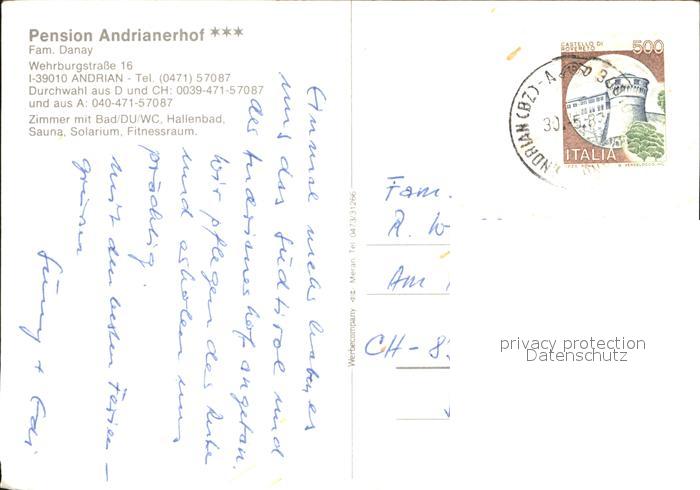 Pension Andrianerhof ***
Fam. Danay
Wehrburgstraße 16
I-39010 ANDRIAN - Tel. (0471) 57087
Durchwahl aus D und CH: 0039-471-57087
und aus A: 040-471-57087
Zimmer mit Bad/DU/WC, Hallenbad,
Sauna, Solarium, Fitnessraum.
Einmal mehr haben es
uns das Südtirol und
der Andrianerhof angetan.
Wir pflegen der Ruhe
und erholen uns
prächtig
mit den besten Ferien-
grüssen
+ Edi
Werbecompany Meran, Tel. 0473/31266
CASTELLO DI
ROVERETO
500
ITALIA
ANDRIAN (BZ)
Fam.
R. W
Am
CH-8
privacy protection
Datenschutz